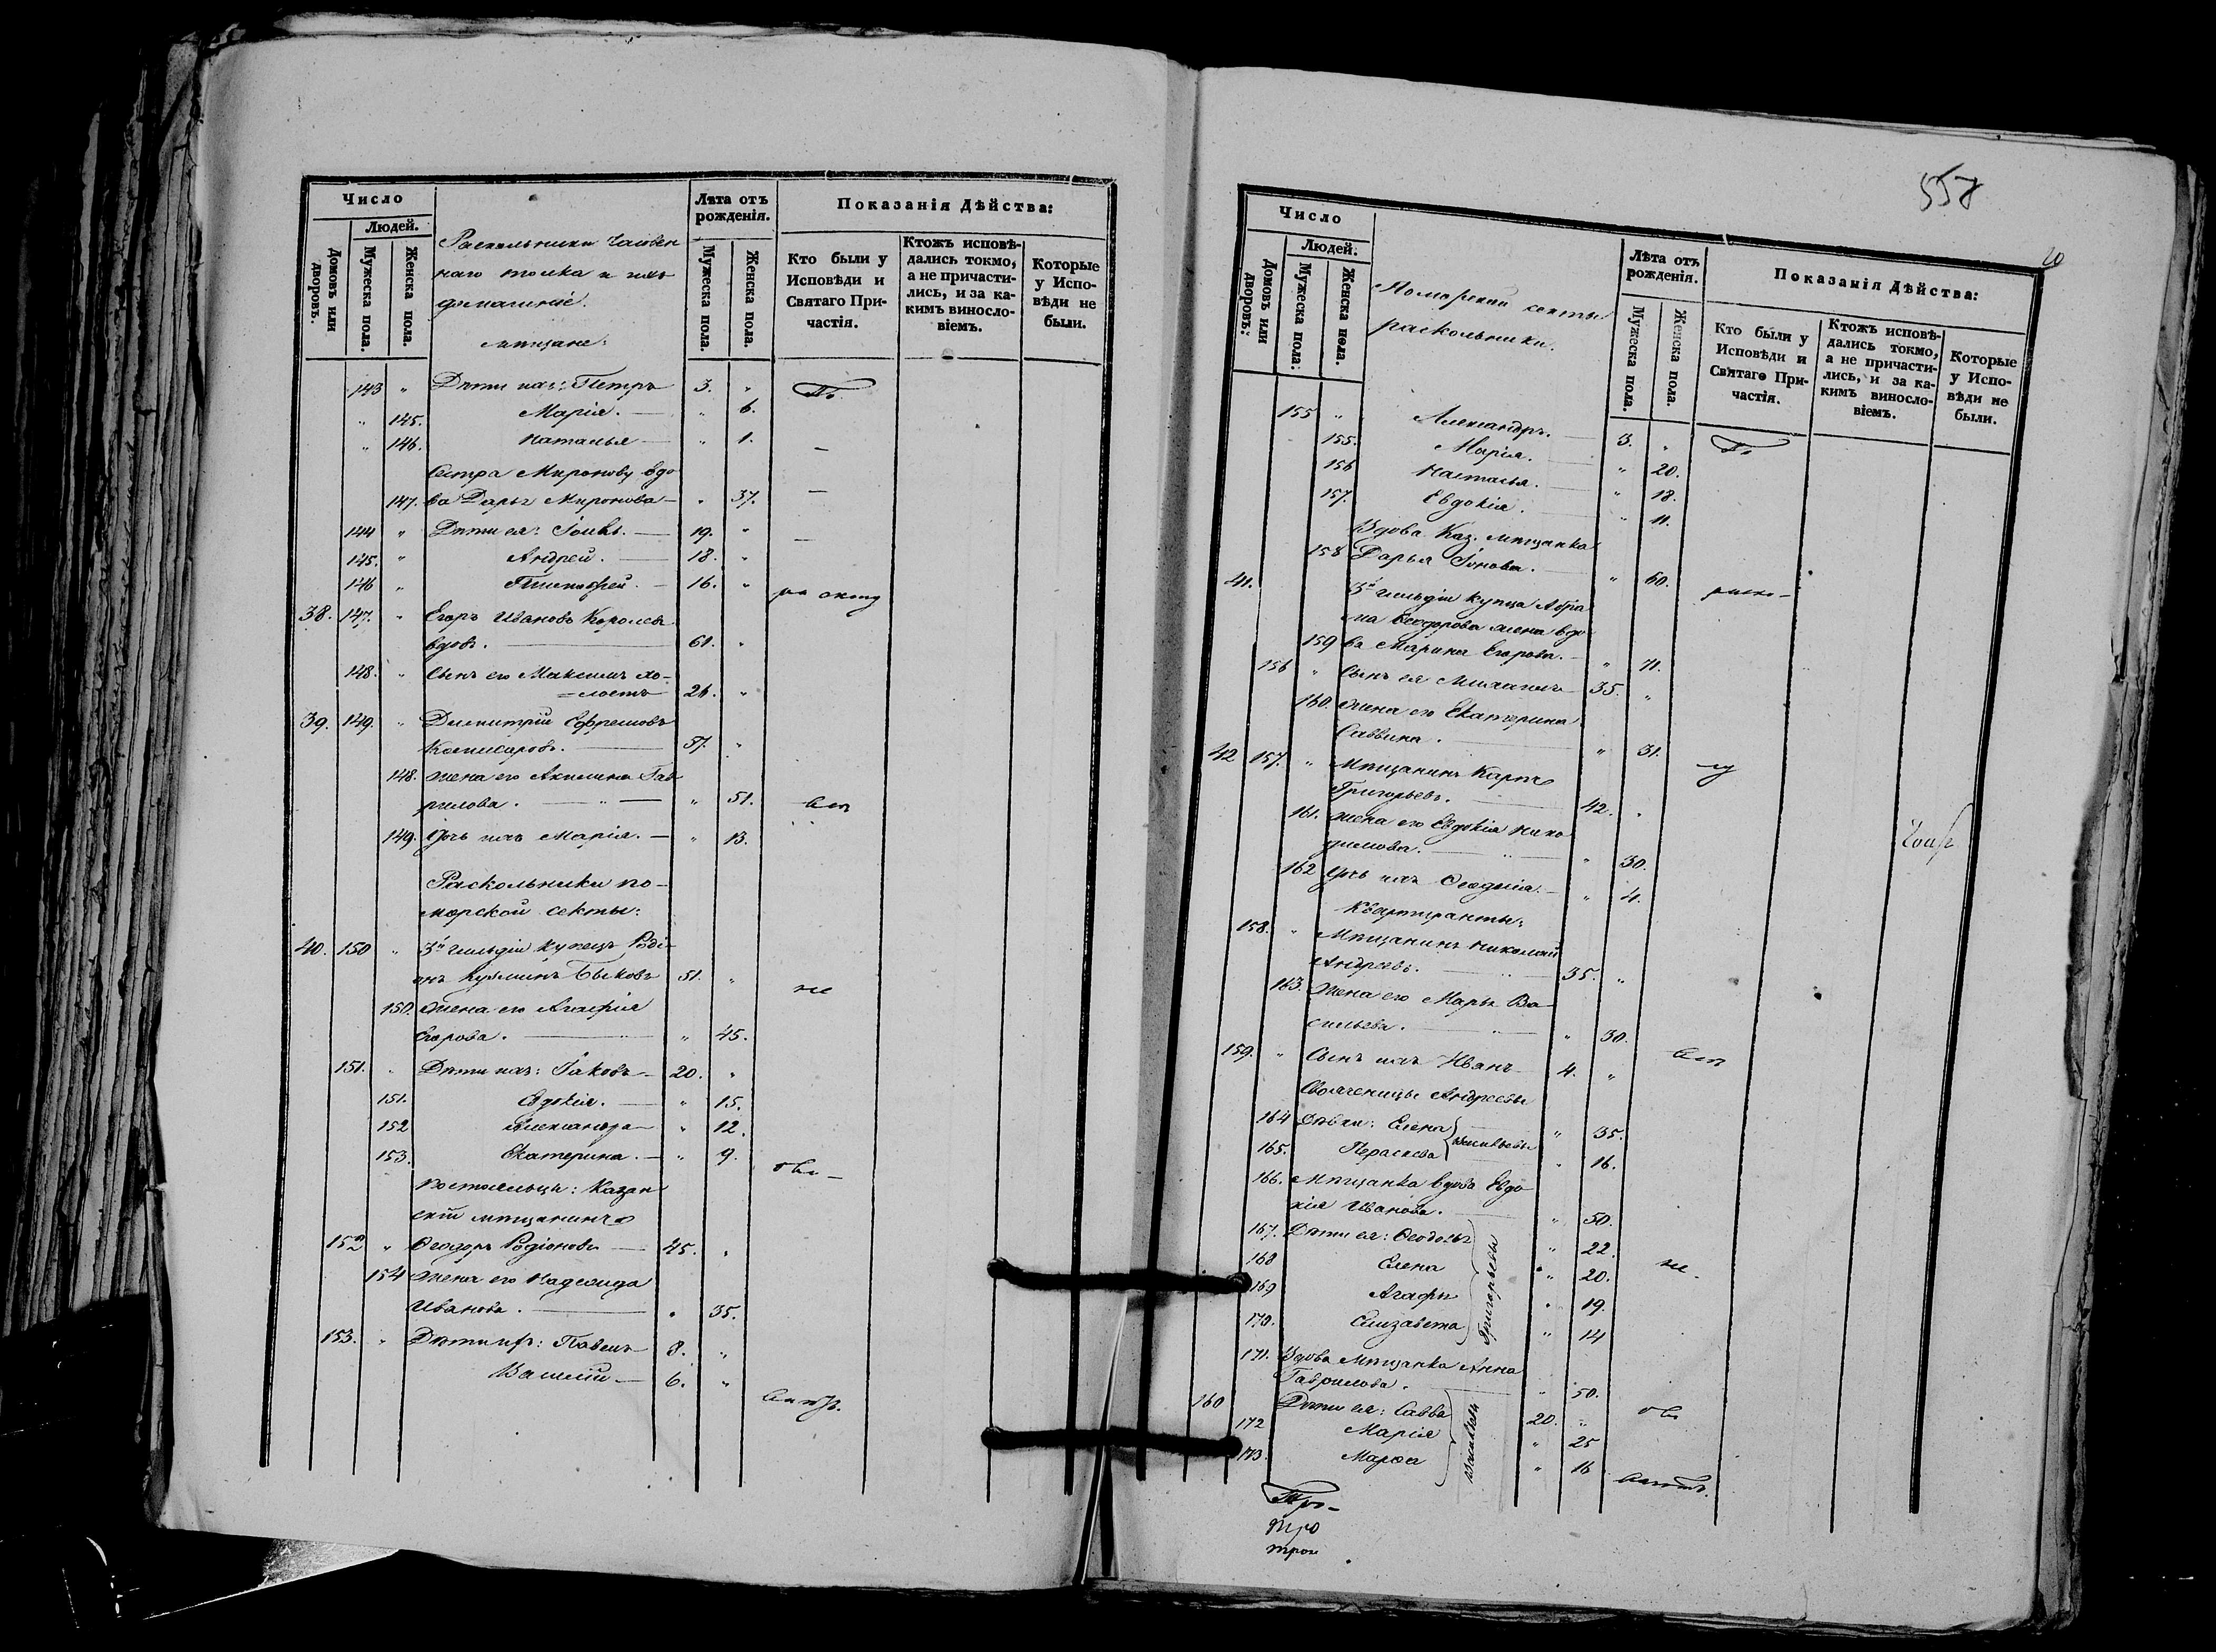 Число
Людей.
Домовъ или дворовъ.
Мужеска пола.
Женска пола.
Раскольники Часовен
наго толка и ихъ
домашніе:
мѣщане:
Лѣта отъ рожденія.
Мужеска пола.
Женска пола.
Показанія Дѣйства:
Кто были у Исповѣди и Святаго Причастія.
Ктожъ исповѣдались токмо, а не причастились, и за какимъ винословіемъ.
Которые у Исповѣди не были.
143 " Дѣти ихъ: Петръ 3. "
" 145. Марія. — " 6.
" 146. Наталья — " 1.
Сестра Миронову вдо
147. ва Дарья Миронова — " 37.
144 " Дѣти ея: Іовъ. — 19. "
145. " Андрей. — 18. "
146 " Тимофей. — 16. "
38. 147. " Егоръ Ивановъ Королевъ
вдовъ. — 61. "
148. " Сынъ его Максимъ хо-
=лостъ 26. "
39. 149. " Димитрій Ефремовъ
Комисаровъ. — 57. "
148. Жена его Акилина Гав
рилова. — " 51.
149. Дочь ихъ Марія. — " 13.
Раскольники по-
морской секты:
40. 150 " 3й гильдіи купецъ Родi-
онъ Кузминъ Быковъ 51. "
150. Жена его Агафія
Егорова. — " 45.
151. " Дѣти ихъ: Іаковъ — 20. "
151. Евдокія. — " 15.
152 Александра — " 12.
153. Екатерина. — " 9.
Постояльцы: Казан
скій мѣщанинъ
152 " Ѳеодоръ Родіоновъ — 45. "
154 Жена его Надежда
Иванова. — " 35.
153. " Дѣти ихъ: Павелъ 8. "
Василій — 6. "
558
20
Число
Людей.
Домовъ или дворовъ.
Мужеска пола.
Женска пола.
Поморской секты
раскольники.
Лѣта отъ рожденія.
Мужеска пола.
Женска пола.
Показанія Дѣйства:
Кто были у Исповѣди и Святаго Причастія.
Ктожъ исповѣдались токмо, а не причастились, и за какимъ винословіемъ.
Которые у Исповѣди не были.
155 " Александръ. — 3. "
155. Марія. — " 20.
156 Настасья. — " 18.
157. Евдокія. — " 11.
Вдова Каз. мѣщанка
158 Дарья Іонова. — " 60.
41. 3й гильдіи купца Абра
ма Ѳеодорова жена вдо
159 ва Марина Егорова. — " 71.
156 " Сынъ ея Михаилъ 35. "
160. Жена его Екатерина
Саввина. — " 31.
42 157. " Мѣщанинъ Карпъ
Григорьевъ. — 42. "
161. Жена его Евдокія Нико
димова. — " 30.
162 Дочь ихъ Ѳеодосія. — " 4.
Квартиранты:
158. " Мѣщанинъ Николай
Андреевъ. — 35. "
163. Жена его Марья Ва
сильева. — " 30.
159. " Сынъ ихъ Иванъ 4. "
Свояченицы Андреевы
164 дѣвки: Елена " 35.
165. Параскева Васильевы " 16.
166. Мѣщанка вдова Евдо
кія Иванова. — " 50.
167. Дѣти ея: Ѳеодосья " 22.
168 Елена " 20.
169 Агафья " 19.
170. Елизавета " 14
Григорьевы
171. Вдова мѣщанка Анна
Гаврилова. — " 50.
160 Дѣти ея: Савва 20. "
172 Марія " 25
173. Марѳа " 16
Про-
тро
трои